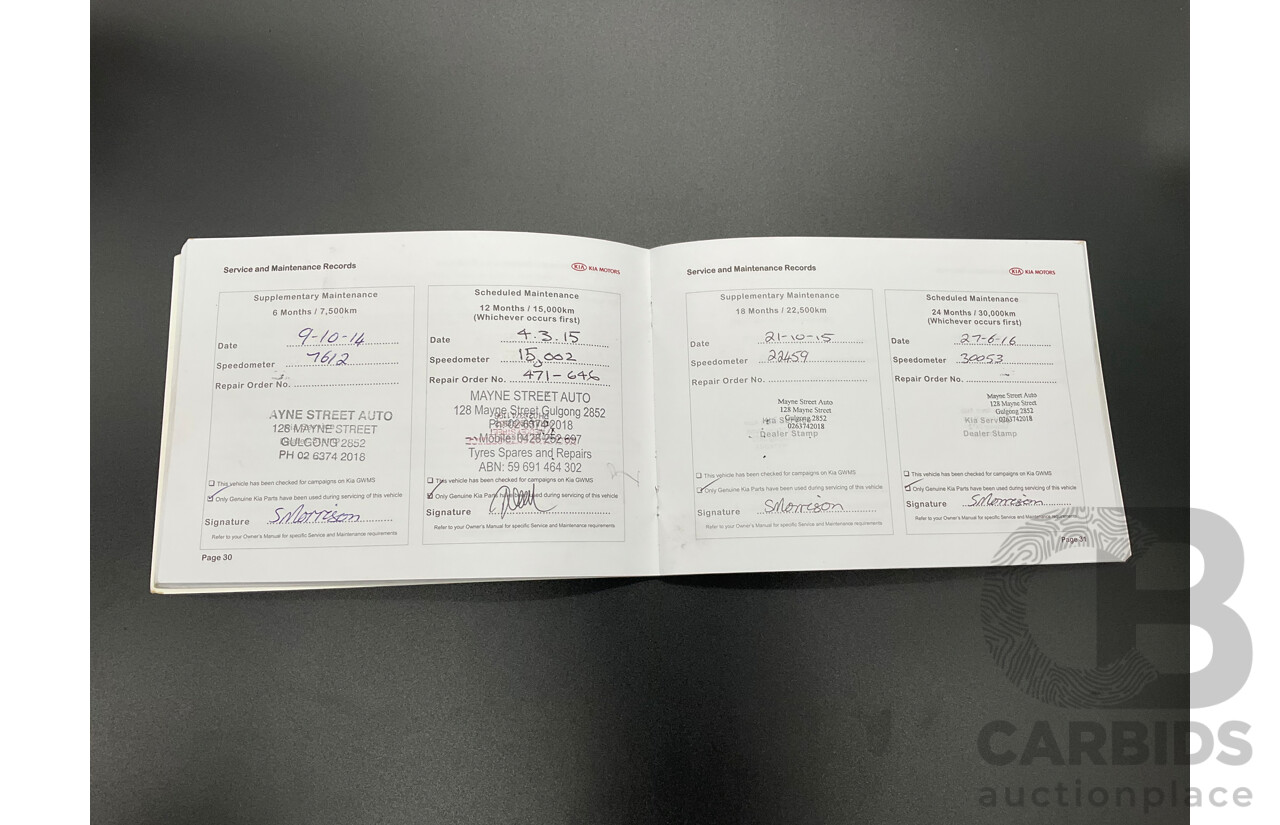 Service and Maintenance Records
KIA KIA MOTORS
Supplementary Maintenance
6 Months / 7,500km
Date 9-10-14
Speedometer 7612
Repair Order No.
AYNE STREET AUTO
128 MAYNE STREET
GULGONG 2852
PH 02 6374 2018
This vehicle has been checked for campaigns on Kia GWMS
Only Genuine Kia Parts have been used during servicing of this vehicle
Signature SMorrison
Refer to your Owner's Manual for specific Service and Maintenance requirements
Page 30
Scheduled Maintenance
12 Months / 15,000km
(Whichever occurs first)
Date 4.3.15
Speedometer 15,002
Repair Order No. 471-646
MAYNE STREET AUTO
128 Mayne Street Gulgong 2852
Ph: 02 6374 2018
Mobile: 0428 252 697
Tyres Spares and Repairs
ABN: 59 691 464 302
This vehicle has been checked for campaigns on Kia GWMS
Only Genuine Kia Parts have been used during servicing of this vehicle
Signature
Refer to your Owner's Manual for specific Service and Maintenance requirements
Service and Maintenance Records
KIA KIA MOTORS
Supplementary Maintenance
18 Months / 22,500km
Date 21-10-15
Speedometer 22459
Repair Order No.
Mayne Street Auto
128 Mayne Street
Gulgong 2852
0263742018
Kia Service
Dealer Stamp
This vehicle has been checked for campaigns on Kia GWMS
Only Genuine Kia Parts have been used during servicing of this vehicle
Signature SMorrison
Refer to your Owner's Manual for specific Service and Maintenance requirements
Scheduled Maintenance
24 Months / 30,000km
(Whichever occurs first)
Date 27-6-16
Speedometer 30053
Repair Order No.
Mayne Street Auto
128 Mayne Street
Gulgong 2852
0263742018
Kia Service
Dealer Stamp
This vehicle has been checked for campaigns on Kia GWMS
Only Genuine Kia Parts have been used during servicing of this vehicle
Signature SMorrison
Refer to your Owner's Manual for specific Service and Maintenance requirements
Page 31
CB
CARBIDS
auctionplace